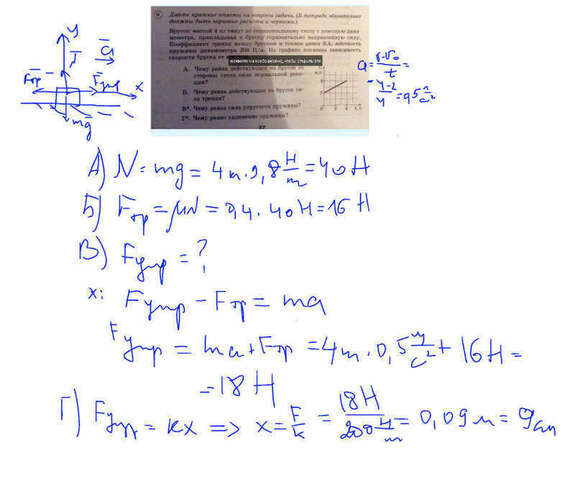 y
a
Fтр
Fупр
x
mg
Дайте краткие ответы на вопросы задачи. (В тетради обязательно
должны быть краткие расчеты и чертежи.)
Брусок массой 4 кг тянут по горизонтальному столу с помощью дина-
мометра, прикладывая к бруску горизонтально направленную силу.
Коэффициент трения между бруском и столом равен 0,4, жёсткость
пружины динамометра 200 Н/м. На графике показана зависимость
скорости бруска от
А. Чему равна действующая на брусок со
стороны стола сила нормальной реак-
ции?
Б. Чему равна действующая на брусок си-
ла трения?
В*. Чему равна сила упругости пружины?
Г*. Чему равно удлинение пружины?
a = v-v₀/t =
= 4-2/4 = 0,5 м/с²
А) N = mg = 4 м · 9,8 Н/м = 40 Н
Б) Fтр = μN = 0,4 · 40 Н = 16 Н
В) Fупр = ?
x: Fупр - Fтр = ma
Fупр = ma + Fтр = 4 м · 0,5 м/с² + 16 Н =
= 18 Н
Г) Fупр = kx => x = F/k = 18 Н/200 Н/м = 0,09 м = 9 см